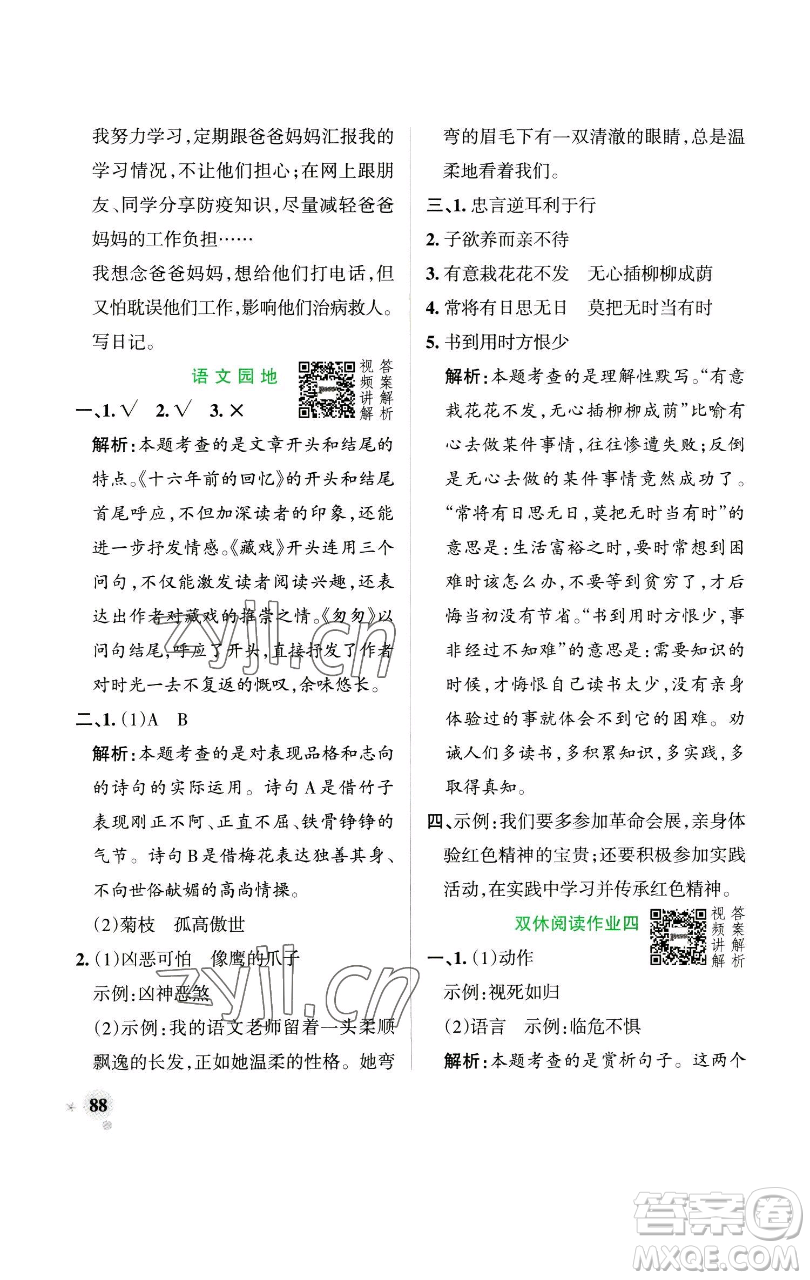 我努力学习,定期跟爸爸妈妈汇报我的
学习情况,不让他们担心;在网上跟朋
友、同学分享防疫知识,尽量减轻爸爸
妈妈的工作负担……
我想念爸爸妈妈,想给他们打电话,但
又怕耽误他们工作,影响他们治病救人。
写日记。
语文园地
视频讲解
答案解析
一、1.√ 2.√ 3.×
解析:本题考查的是文章开头和结尾的
特点。《十六年前的回忆》的开头和结尾
首尾呼应,不但加深读者的印象,还能
进一步抒发情感。《藏戏》开头连用三个
问句,不仅能激发读者阅读兴趣,还表
达出作者对藏戏的推崇之情。《匆匆》以
问句结尾,呼应了开头,直接抒发了作者
对时光一去不复返的慨叹,余味悠长。
二、1.(1)A B
解析:本题考查的是对表现品格和志向
的诗句的实际运用。诗句A是借竹子
表现刚正不阿、铁骨铮铮的
气节。诗句B是借梅花表现独善其身、
不向世俗献媚的高尚情操。
(2)菊枝 孤高傲世
2.(1)凶恶可怕 像鹰的爪子
示例:凶神恶煞
(2)示例:我的语文老师留着一头柔顺
飘逸的长发,正如她温柔的性格。她弯
弯的眉毛下有一双清澈的眼睛,总是温
柔地看着我们。
三、1.忠言逆耳利于行
2.子欲养而亲不待
3.有意栽花花不发 无心插柳柳成荫
4.常将有日思无日 莫把无时当有时
5.书到用时方恨少
解析:本题考查的是理解性默写。“有意
栽花花不发,无心插柳柳成荫”比喻有
心去做某件事情,往往惨遭失败;反倒
是无心去做的某件事情竟然成功了。
“常将有日思无日,莫把无时当有时”的
意思是:生活富裕之时,要多想想困
难时该怎么办,不要等到贫穷了,才后
悔当初没有节省。“书到用时方恨少,事
非经过不知难”的意思是:需要知识的
时候,才悔恨自己读书太少,没有亲身
体验过的事就体会不到它的困难。劝
诫人们多读书,多积累知识,多实践,多
取得真知。
四、示例:我们要多参加革命会展,亲身体
验红色精神的宝贵;还要积极参加实践
活动,在实践中学习并传承红色精神。
双休阅读作业四
视频讲解
答案解析
一、1.(1)动作
示例:视死如归
(2)语言 示例:临危不惧
解析:本题考查的是赏析句子。这两个
88
zyjl.cn
zyjl.cn
答案圈
MXQE.COM